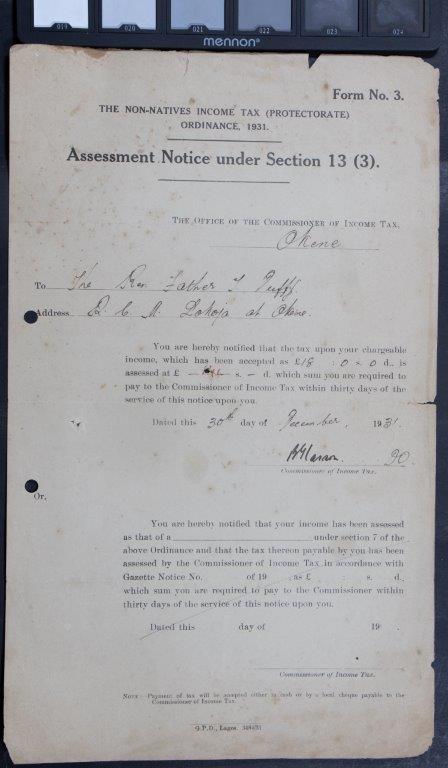 019 020 021 022 023 024
mennon
Form No. 3.
THE NON-NATIVES INCOME TAX (PROTECTORATE)
ORDINANCE, 1931.
Assessment Notice under Section 13 (3).
THE OFFICE OF THE COMMISSIONER OF INCOME TAX,
Okene
To The Rev. Father J Duffy
Address R. C. M. Lokoja at Okene.
You are hereby notified that the tax upon your chargeable
income, which has been accepted as £18 : 0 s 0 d., is
assessed at £ — s. — d. which sum you are required to
pay to the Commissioner of Income Tax within thirty days of the
service of this notice upon you.
Dated this 30th day of December, 1931.
DO.
Commissioner of Income Tax.
Or,
You are hereby notified that your income has been assessed
as that of a under section 7 of the
above Ordinance and that the tax thereon payable by you has been
assessed by the Commissioner of Income Tax in accordance with
Gazette Notice No. of 19 as £ : s. d.
which sum you are required to pay to the Commissioner within
thirty days of the service of this notice upon you.
Dated this day of 19 .
Commissioner of Income Tax.
NOTE—Payment of tax will be accepted either in cash or by a local cheque payable to the
Commissioner of Income Tax.
G.P.D., Lagos.